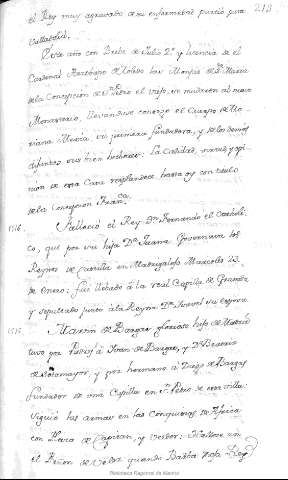 213
el Rey muy agravado de su enfermedad partió para
Valladolid.
Este año con Bula de Julio 2º y licencia de el
Cardenal Arzobispo de Toledo las Monjas de Sta. Maria
de la Concepcion de Sn. Pedro el viejo, se mudaron al nuevo
Monasterio, llevandose consigo el Cuerpo de Ma-
riana Mexia su primera fundadora, y de los demas
difuntos sus bien hechores. La Calidad, virtud y opi-
nion de esta Casa resplandece hasta oy con titulo
de la Concepcion Franca.
1516. Falleció el Rey Dn. Fernando el Catholi-
co, que por su hija Da. Juana Governava los
Reynos de Castilla en Madrigalejo Miercoles 23
de Enero: fué llebado á la real Capilla de Granada
y sepultado junto á la Reyna Da. Isavel su esposa
Martin de Bargas glorioso hijo de Madrid
tuvo por Padres á Juan de Bargas, y Da. Beatriz
de Sotomayor, y por hermano á Diego de Bargas
fundador de una Capilla en Sn. Pedro de esta villa:
siguió las armas en las Conquistas de Africa
con Plaza de Capitan, y Veedor: Hallose en
el Peñon de Velez quando Barba Roja Rey
Biblioteca Regional de Madrid